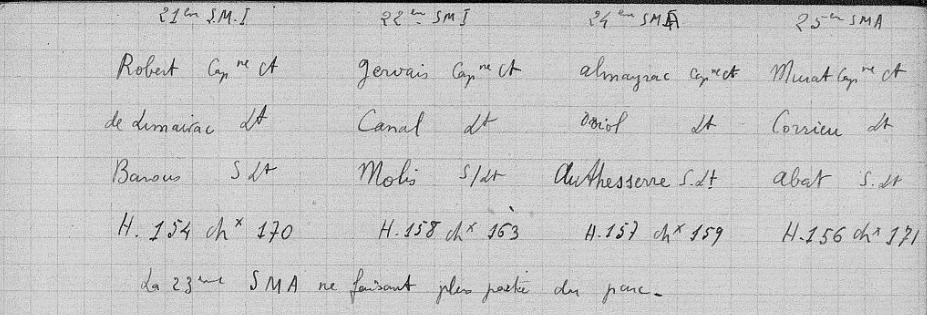 21ème S.M.I 22ème SMI 24ème SMA 25ème SMA
Robert Capne Ct Gervais Capne Ct Almayrac Capne Ct Murat Capne Ct
de Limairac Lt Canal Lt Oriol Lt Corrieu Lt
Barous S Lt Molis S/Lt Authesserre S.Lt Abat S.Lt
H. 154 chx 170 H. 158 chx 163 H. 157 chx 159 H. 156 chx 171
La 23ème SMA ne faisant plus partie du parc.